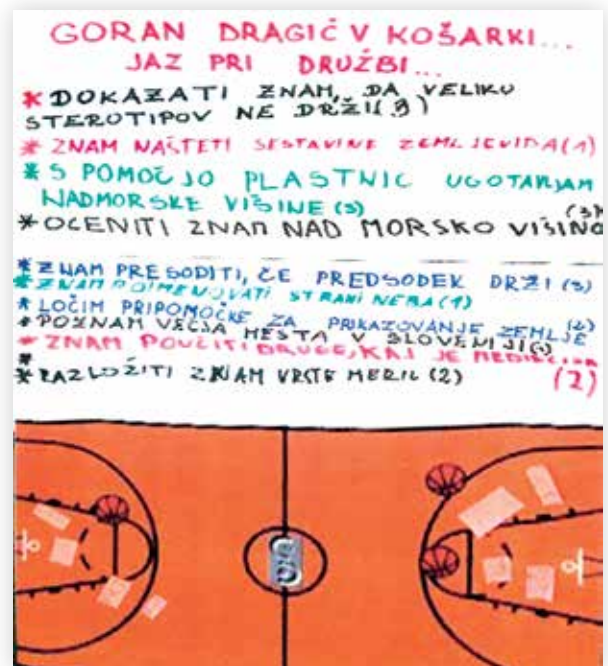 GORAN DRAGIĆ V KOŠARKI...
JAZ PRI DRUŽBI...
* DOKAZATI ZNAM, DA VELIKO
STEROTIPOV NE DRŽI(3)
* ZNAM NAŠTETI SESTAVINE ZEMLJEVIDA(1)
* S POMOČJO PLASTNIC UGOTAVLJAM
NADMORSKE VIŠINE (3)
(3)
* OCENITI ZNAM NAD MORSKO VIŠINO
* ZNAM PRESODITI, ČE PREDSODEK DRŽI (3)
* ZNAM POIMENOVATI STRANI NEBA(1)
* LOČIM PRIPOMOČKE ZA PRIKAZOVANJE ZEMLJE (2)
* POZNAM VEČJA MESTA V SLOVENIJI
* ZNAM POUČITI DRUGE, KAJ JE
*
* RAZLOŽITI ZNAM VRSTE MERIL (2) (2)